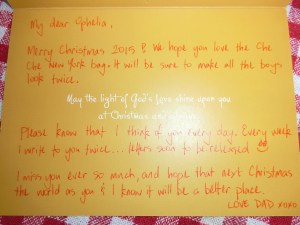 My dear Ophelia,
Merry Christmas 2015 & We hope you love the Che
Che New York bag. It will be sure to make all the boys
look twice.
May the light of God's Love shine upon you
at Christmas and
Please know that I think of you every day. Every week
I write to you twice... letters soon to be released
I miss you ever so much, and hope that next Christmas
the world as you & I know it will be a better place.
LOVE DAD xoxo